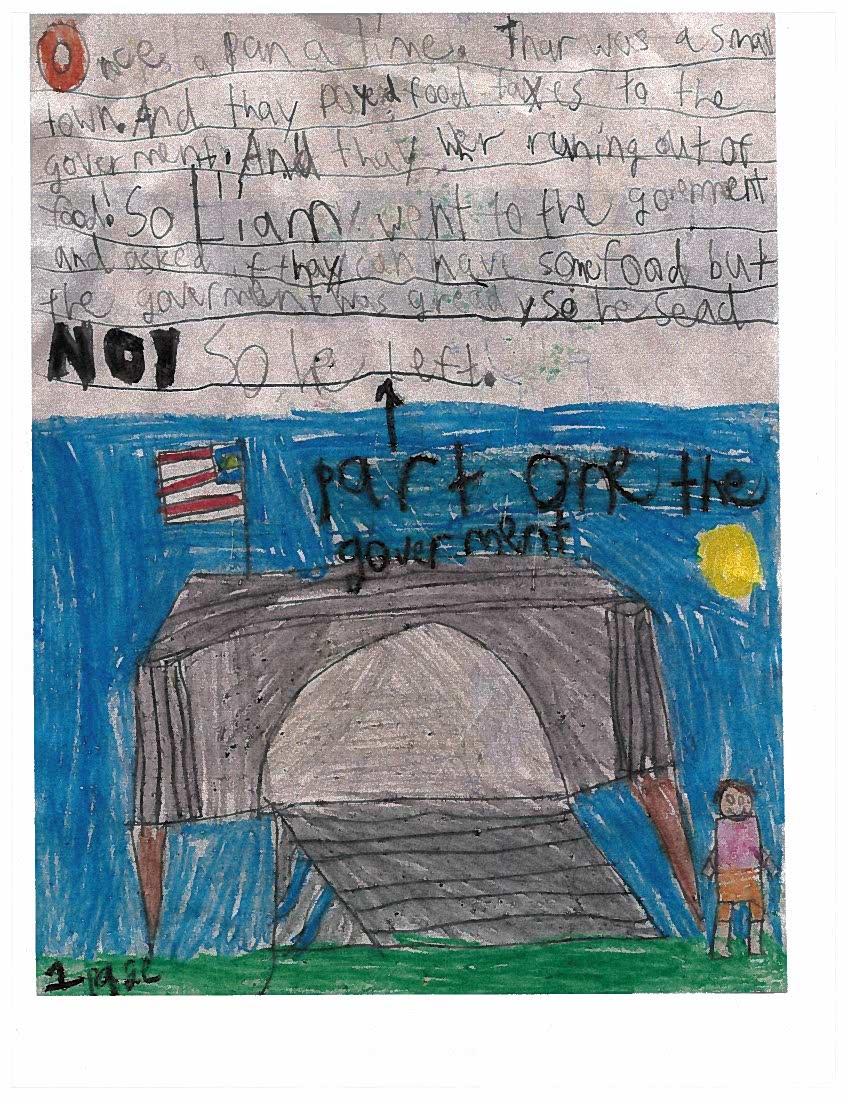 Once a pan a time. Thar was a small
town. And thay payed food taxes to the
goverment. And thay wer runing out of
food! So Liam went to the goverment
and asked if thay can have some food but
the goverment was greedy so he sead
NO! So he left.
part one the
goverment
1 page